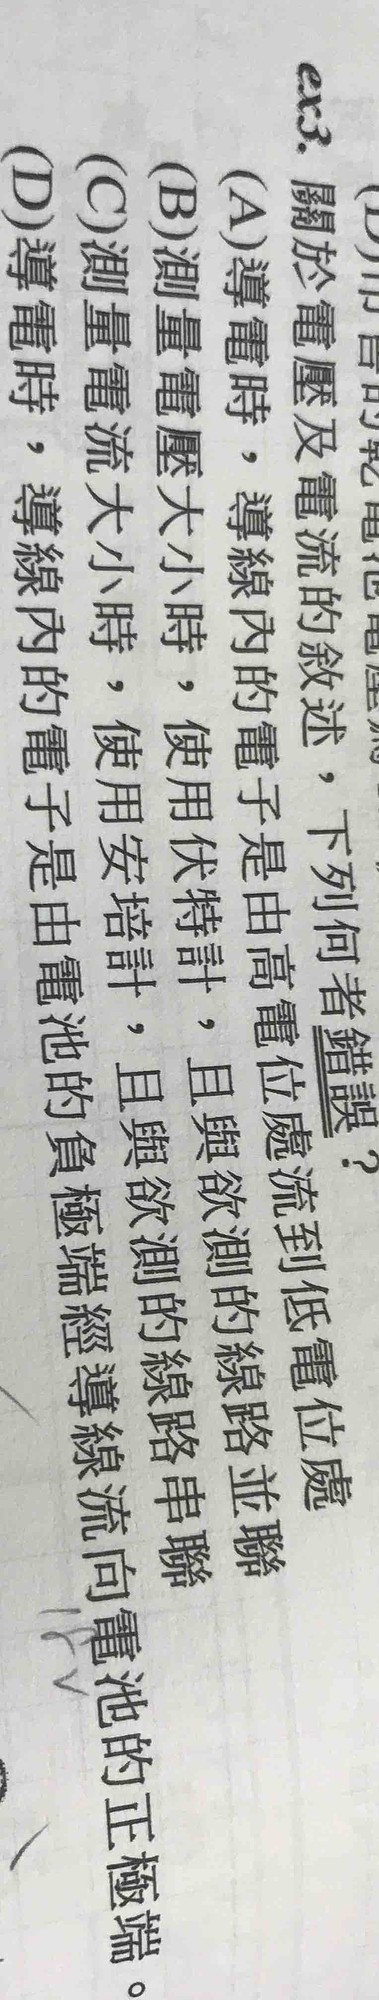 ex3. 關於電壓及電流的敘述，下列何者錯誤？
(A)導電時，導線內的電子是由高電位處流到低電位處
(B)測量電壓大小時，使用伏特計，且與欲測的線路並聯
(C)測量電流大小時，使用安培計，且與欲測的線路串聯
(D)導電時，導線內的電子是由電池的負極端經導線流向電池的正極端。